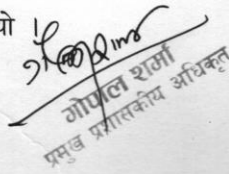 यो !
गोपाल शर्मा
प्रमुख प्रशासकीय अधिकृत